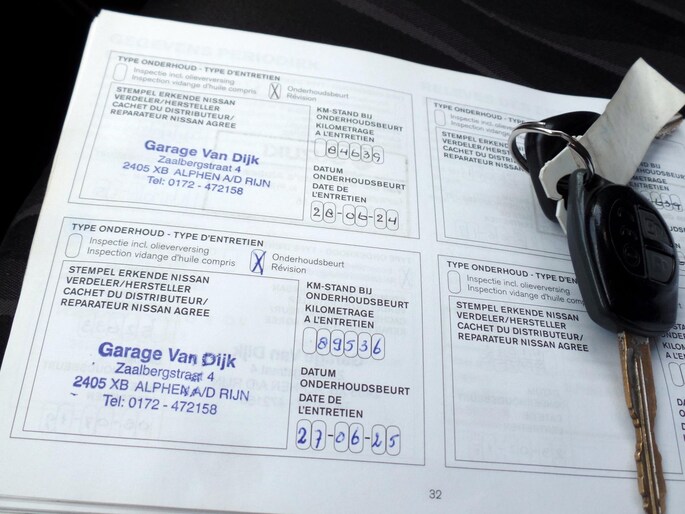 TYPE ONDERHOUD - TYPE D'ENTRETIEN
Inspectie incl. olieverversing
Inspection vidange d'huile compris
X
Onderhoudsbeurt
Révision
STEMPEL ERKENDE NISSAN
VERDELER/HERSTELLER
CACHET DU DISTRIBUTEUR/
REPARATEUR NISSAN AGREE
Garage Van Dijk
Zaalbergstraat 4
2405 XB ALPHEN A/D RIJN
Tel: 0172 - 472158
KM-STAND BIJ
ONDERHOUDSBEURT
KILOMETRAGE
A L'ENTRETIEN
84639
DATUM
ONDERHOUDSBEURT
DATE DE
L'ENTRETIEN
28-06-24
TYPE ONDERHOUD - TYPE D'ENTRETIEN
Inspectie incl. olieverversing
Inspection vidange d'huile compris
X
Onderhoudsbeurt
Révision
STEMPEL ERKENDE NISSAN
VERDELER/HERSTELLER
CACHET DU DISTRIBUTEUR/
REPARATEUR NISSAN AGREE
Garage Van Dijk
Zaalbergstraat 4
2405 XB ALPHEN A/D RIJN
Tel: 0172 - 472158
KM-STAND BIJ
ONDERHOUDSBEURT
KILOMETRAGE
A L'ENTRETIEN
89536
DATUM
ONDERHOUDSBEURT
DATE DE
L'ENTRETIEN
27-06-25
TYPE ONDERHOUD - TYPE
Inspectie incl. olieverversing
Inspection vidange d'huile
STEMPEL ERKENDE NISSAN
VERDELER/HERSTELLER
CACHET DU DISTRIBUTEUR/
REPARATEUR NISSAN AGREE
TYPE ONDERHOUD - TYPE
Inspectie incl. olieverversing
Inspection vidange d'huile
STEMPEL ERKENDE NISSAN
VERDELER/HERSTELLER
CACHET DU DISTRIBUTEUR/
REPARATEUR NISSAN AGREE
32